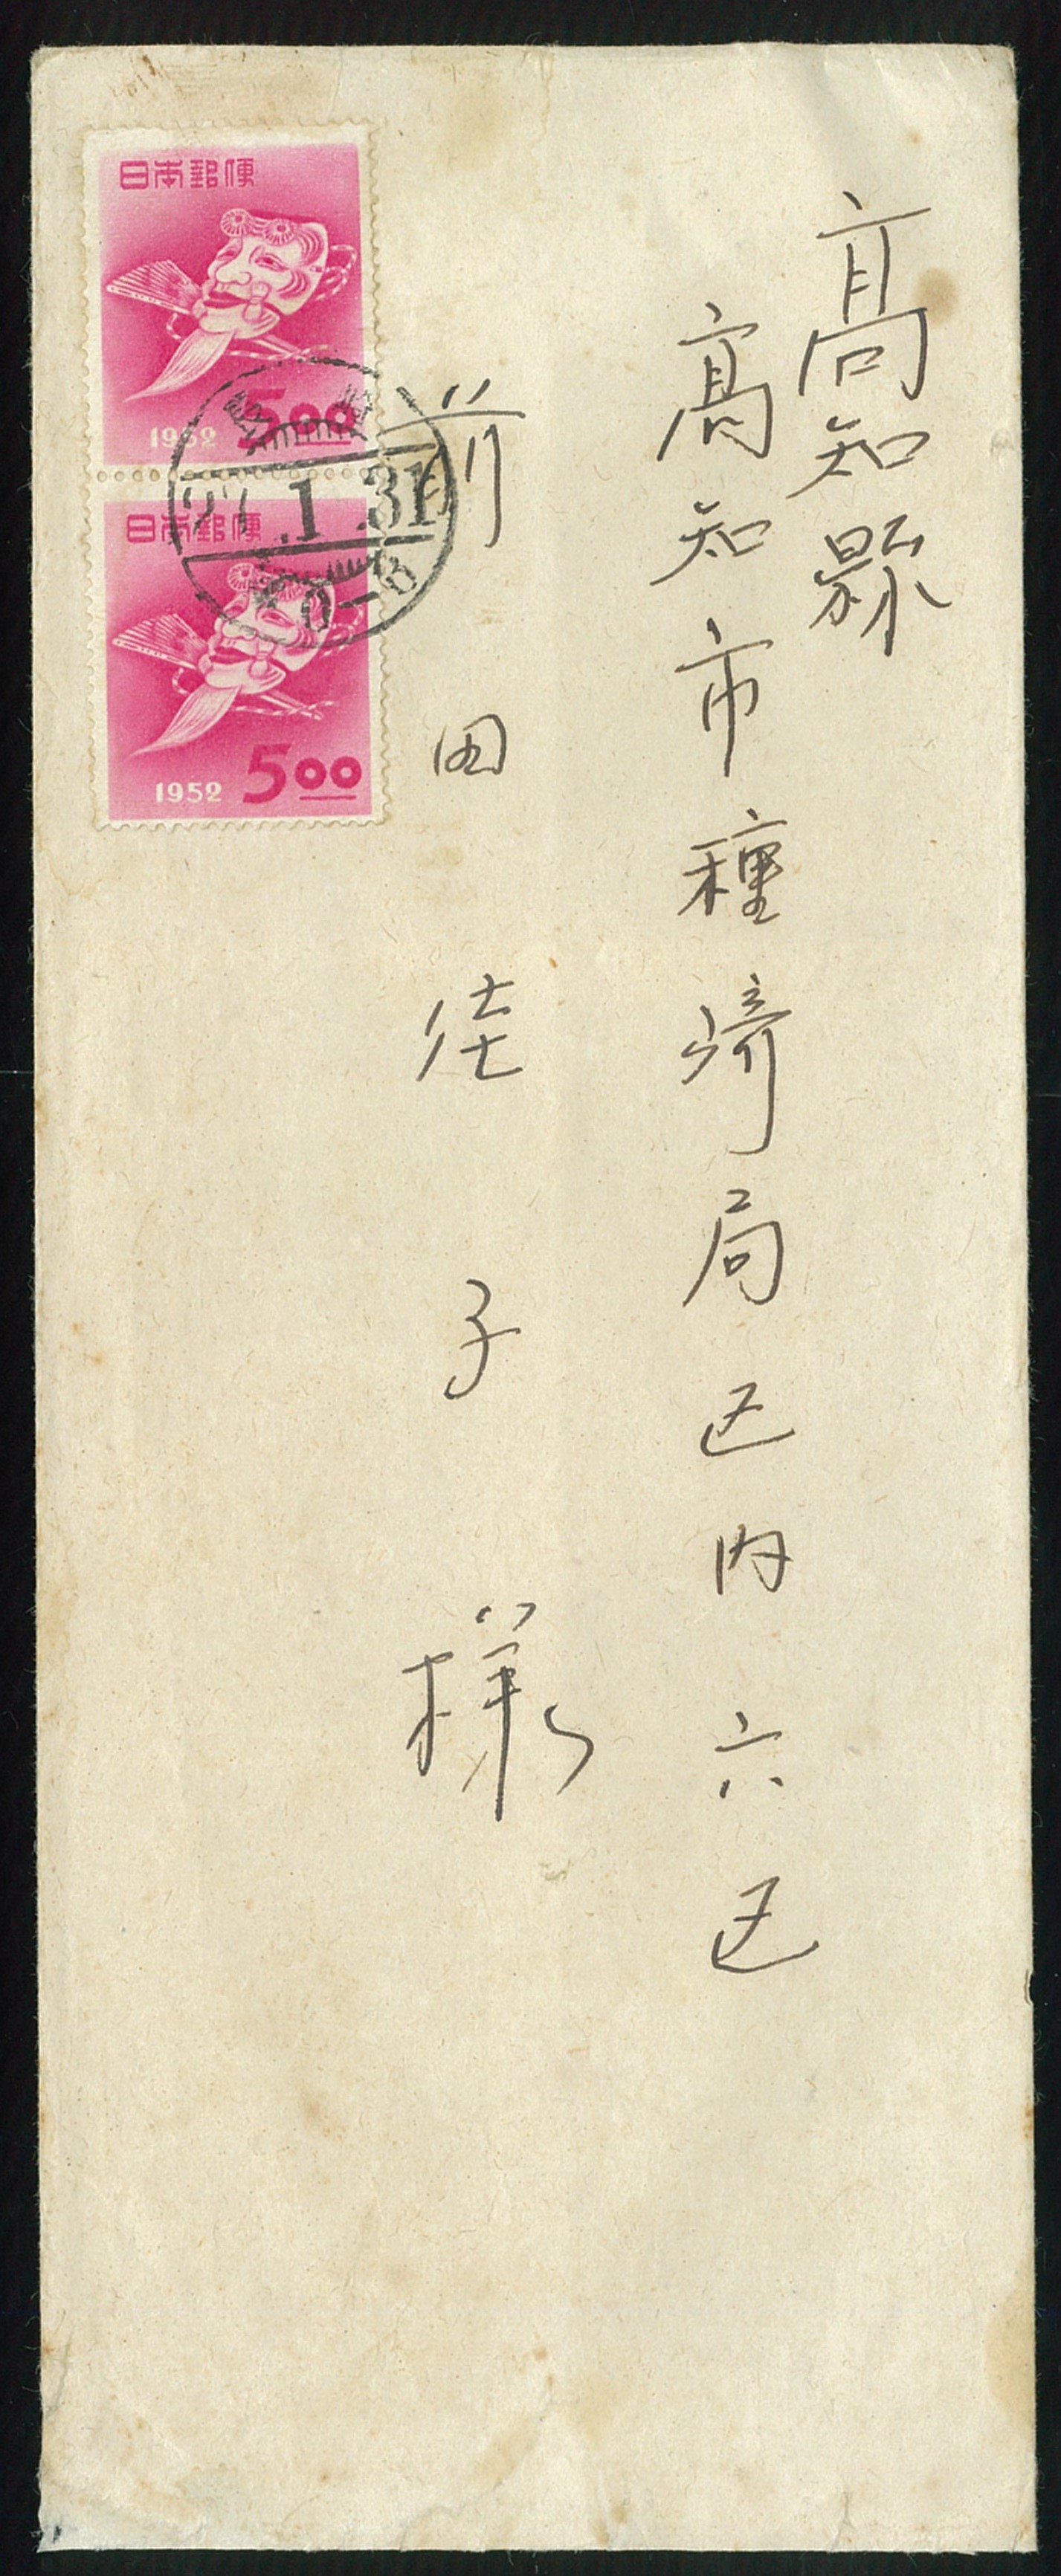 高知縣
高知市種崎局区内六区
前田佳子様
日本郵便
1952 5.00
27.1.31
0-6
日本郵便
1952 5.00